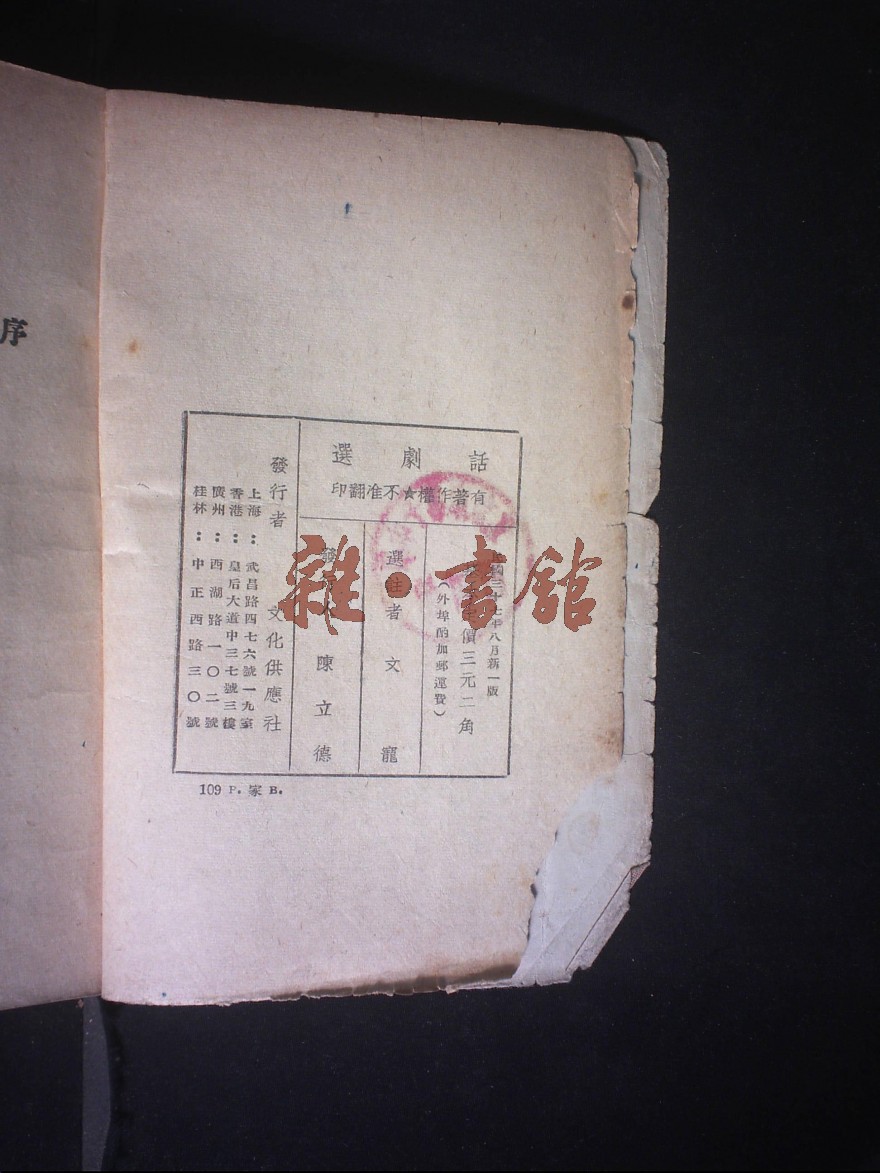 序
話劇選
有著作權★不准翻印
國三十七年八月新一版
價三元二角
(外埠酌加郵運費)
選註者 文寵
發行人 陳立德
發行者 文化供應社
上海：武昌路四七六號一九室
香港：皇后大道中三七號三樓
廣州：西湖路一〇二號
桂林：中正西路三〇號
109 P. 家 B.
雜·書館